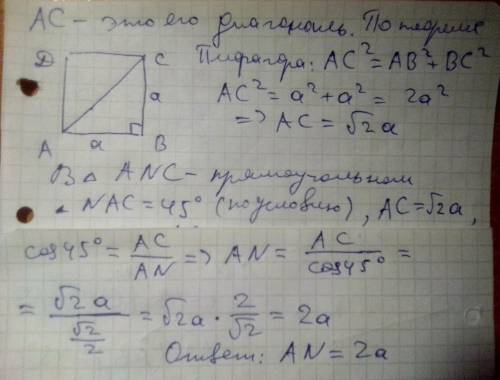 AC – это его диагональ. По теореме
Пифагора: AC² = AB² + BC²
D C
AC² = a² + a² = 2a²
a
=> AC = √2a
A a B
В △ ANC – прямоугольном
∠ NAC = 45° (по условию), AC = √2a,
cos45° = AC/AN => AN = AC/cos45° =
= √2a/(√2/2) = √2a · 2/√2 = 2a
Ответ: AN = 2a